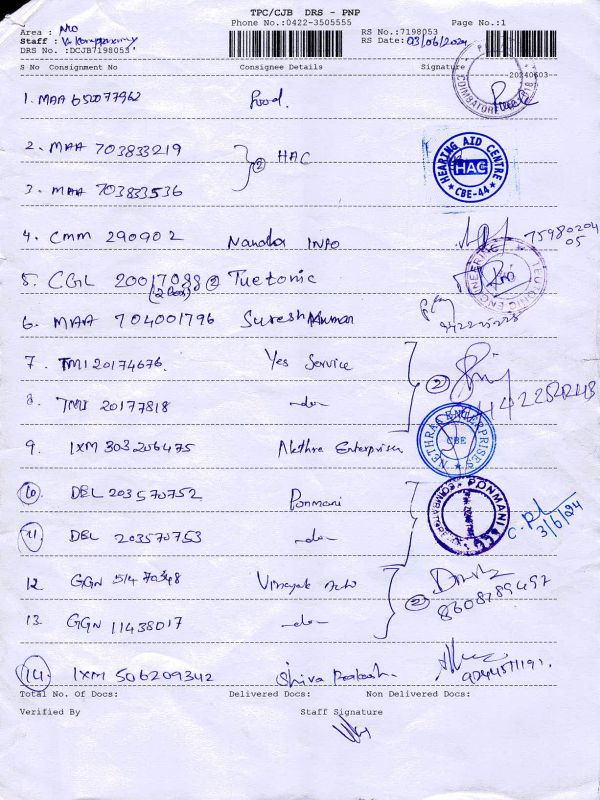 TPC/CJB DRS - PNP
Phone No.:0422-3505555 Page No.:1
Area : RS No.:7198053
Staff : RS Date: 03/06/2024
DRS No. :DCJB7198053
S No Consignment No Consignee Details Signature --20240603--
COIMBATORE
1. MAA 650077962
2. MAA 703833219
② HAC
HEARING AID CENTRE HAC CBE-44
3. MAA 703833536
4. CMM 290902 Nanda INFO 75980204
05
5. CGL 20017088 ② Tuetonic
(2 Box)
TEUTONIC ENGINEERING
6. MAA 704001796 Suresh Kumar
7. TMJ 20174676 Yes Service ②
8. TMJ 20177818 -do-
9. IXM 303206475 Nethra Enterprises
NETHRAA ENTERPRISES CBE
10. DEL 203570752 Ponmani
PONMANI
11. DEL 203570753 -do- 3/6/24
12 GGN 51470348 Vinayak Auto ②
8608789497
13. GGN 11438017 -do-
14. IXM 506209342 Shiva Prakash
Total No. Of Docs: Delivered Docs: Non Delivered Docs:
Verified By Staff Signature